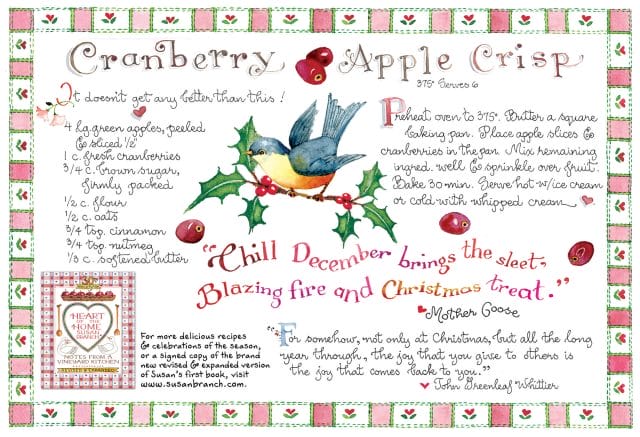 Cranberry Apple Crisp
375° Serves 6
It doesn't get any better than this!
4 lg. green apples, peeled
& sliced ½"
1 c. fresh cranberries
3/4 c. brown sugar,
firmly packed
½ c. flour
½ c. oats
3/4 tsp. cinnamon
3/4 tsp. nutmeg
⅓ c. softened butter
Preheat oven to 375°. Butter a square
baking pan. Place apple slices &
cranberries in the pan. Mix remaining
ingred. well & sprinkle over fruit.
Bake 30 min. Serve hot w/ice cream
or cold with whipped cream
"Chill December brings the sleet,
Blazing fire and Christmas treat."
Mother Goose
HEART
OF THE
HOME
SUSAN
BRANCH
NOTES FROM A
VINEYARD KITCHEN
REVISED & EXPANDED
For more delicious recipes
& celebrations of the season,
or a signed copy of the brand
new revised & expanded version
of Susan's first book, visit
www.susanbranch.com.
"For somehow, not only at Christmas, but all the long
year through, the joy that you give to others is
the joy that comes back to you."
John Greenleaf Whittier